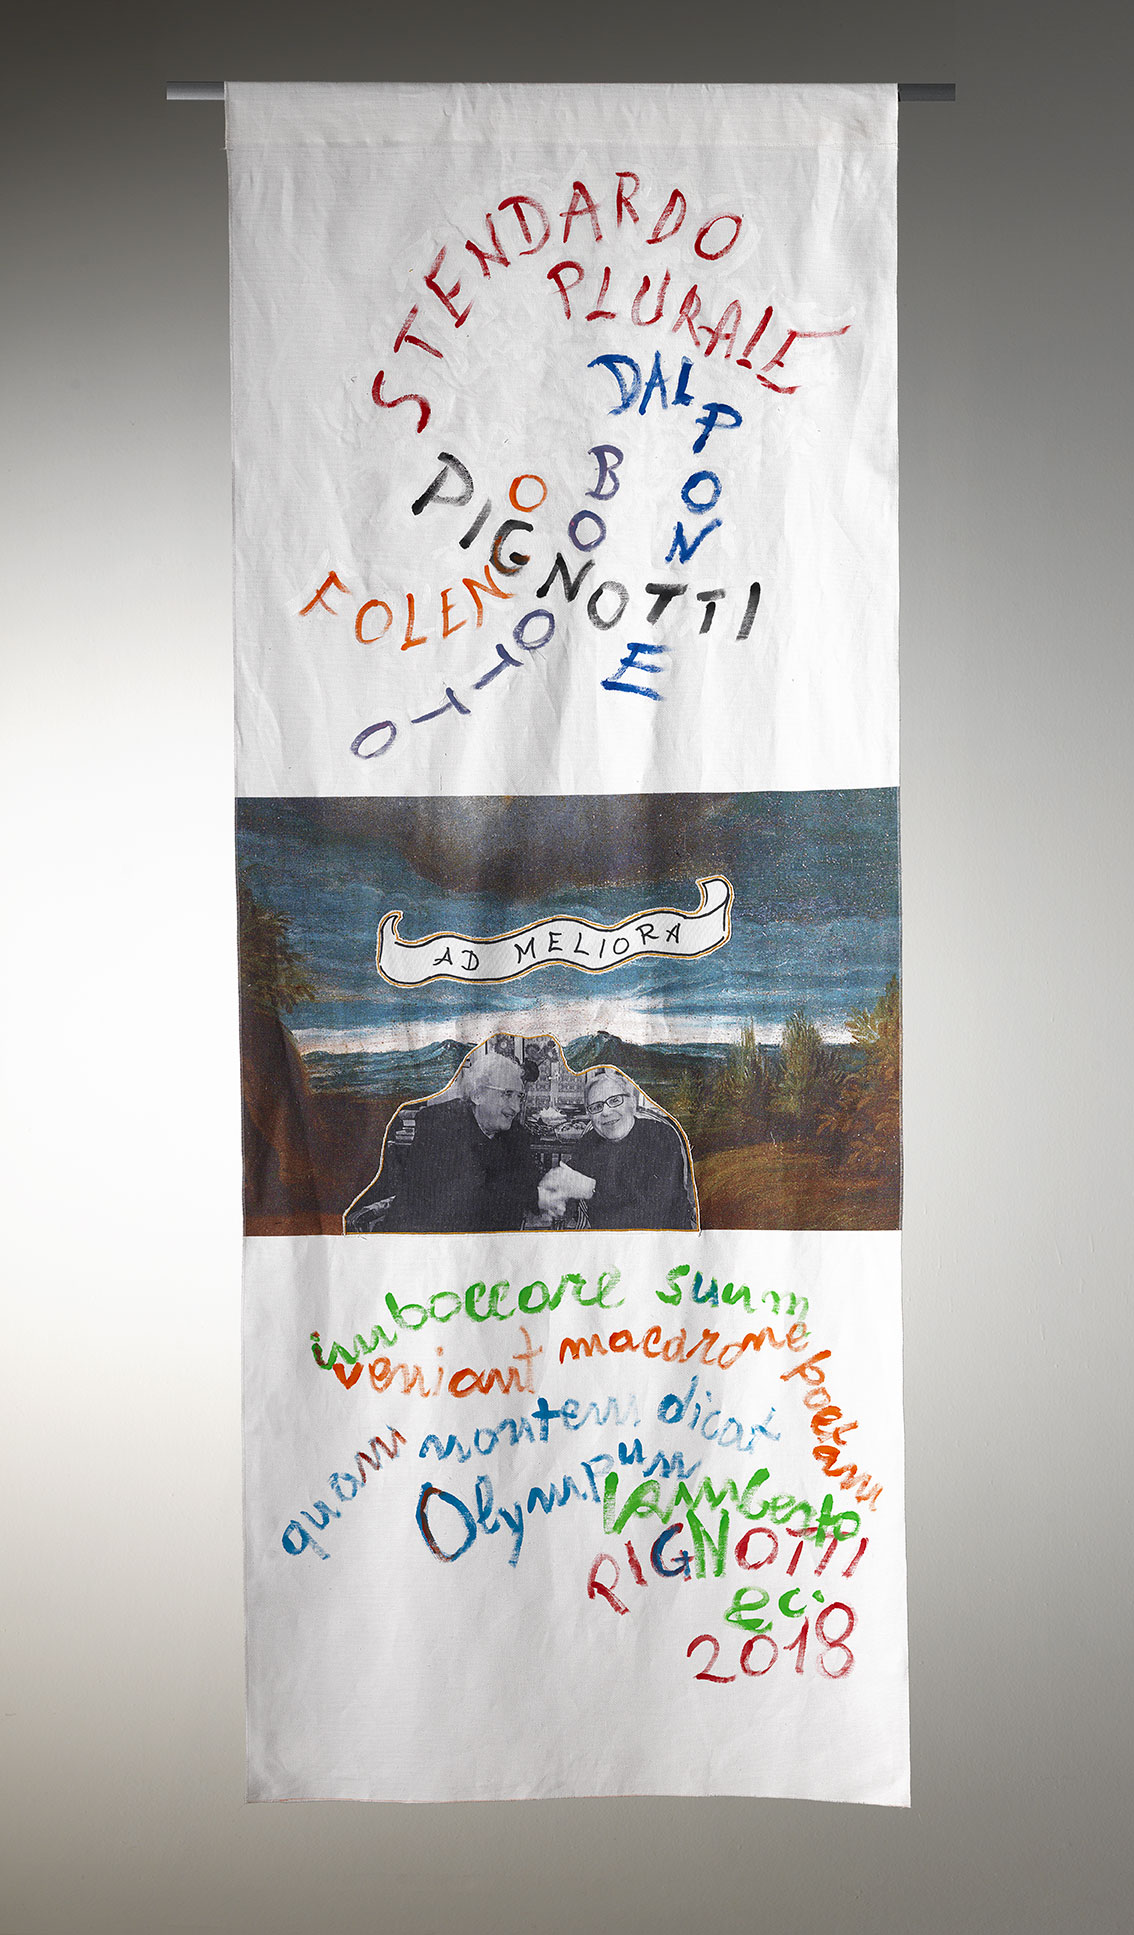 STENDARDO
PLURALE
DALPONTE
BONOTTO
PIGNOTTI
FOLENGO
AD MELIORA
imboccare suum
veniant macarone poetam
quam montem dicat
Olympum
Lamberto
PIGNOTTI
ec.
2018